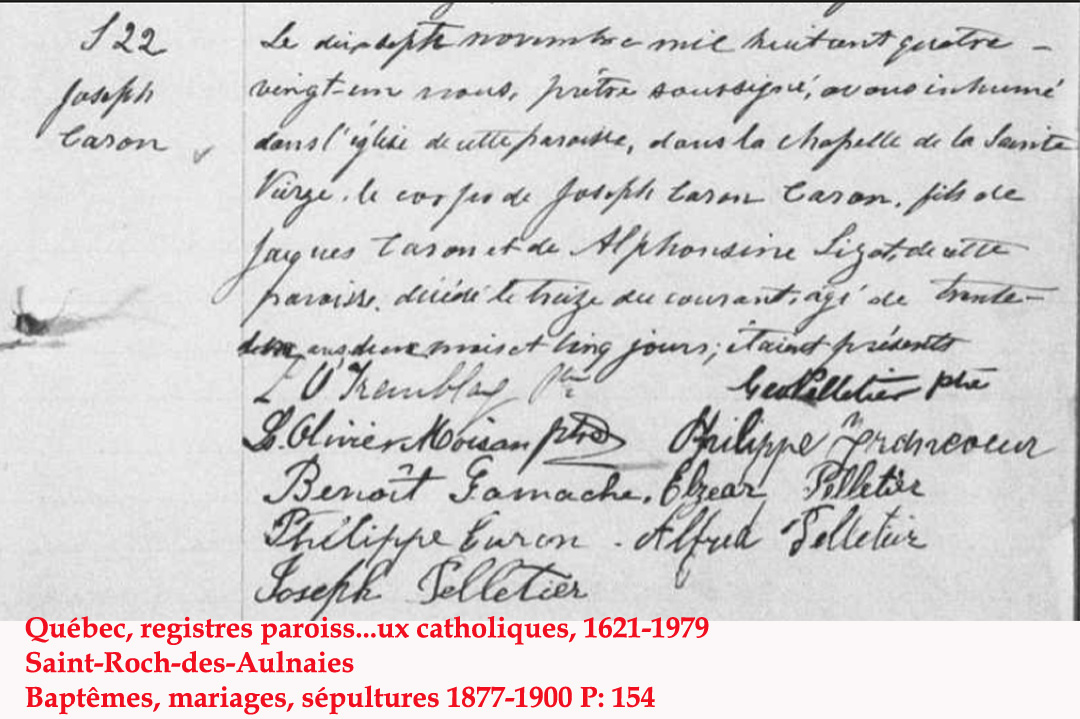 S 22
Joseph
Caron
Le dix-sept novembre mil huit cent quatre-
vingt-un nous, prêtre soussigné, avons inhumé
dans l'église de cette paroisse, dans la chapelle de la Sainte
Vierge, le corps de Joseph Caron Caron, fils de
Jacques Caron et de Alphonsine Lizot, de cette
paroisse, décédé le treize du courant, âgé de trente-
ans, deux mois et cinq jours; étaient présents
L O Tremblay Ptre
Geo Pelletier ptre
L. Olivier Moisan ptre
Philippe Francoeur
Benoît Gamache. Elzear Pelletier
Philippe Caron. Alfred Pelletier
Joseph Pelletier
Québec, registres paroiss...ux catholiques, 1621-1979
Saint-Roch-des-Aulnaies
Baptêmes, mariages, sépultures 1877-1900 P: 154